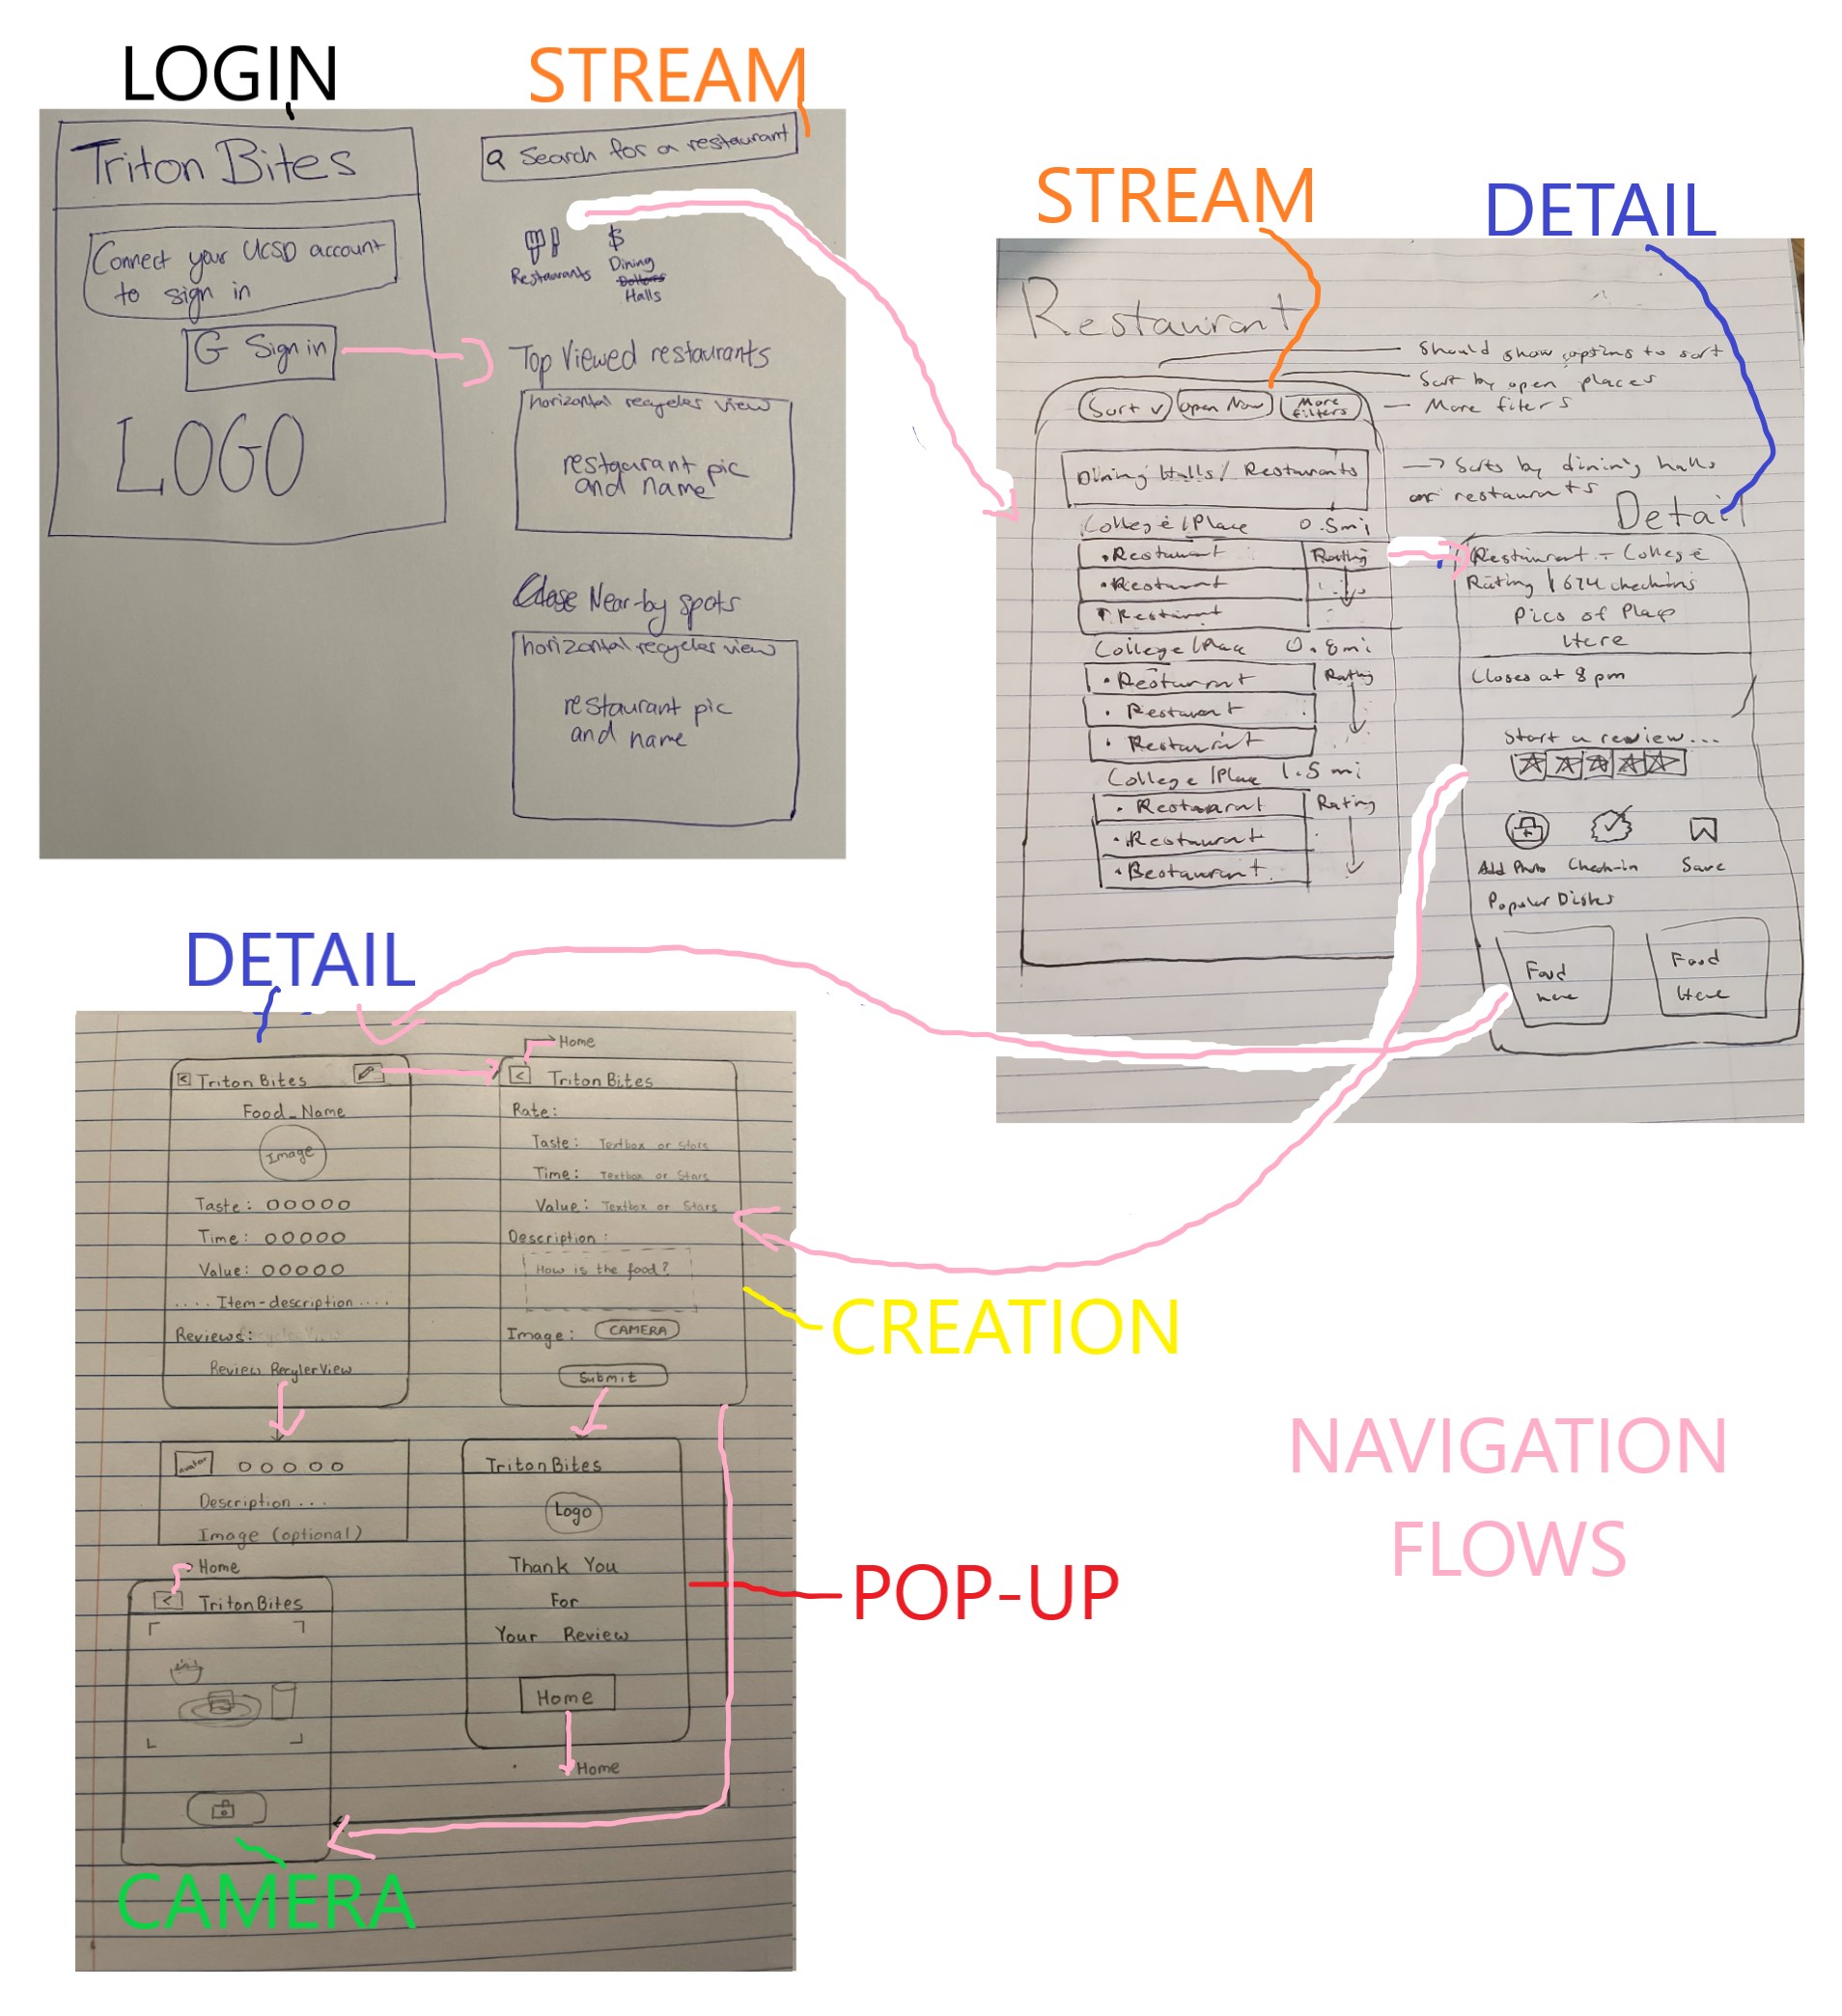 LOGIN
STREAM
Triton Bites
Connect your UCSD account
to sign in
G Sign in
LOGO
Search for a restaurant
Restaurants
$
Dining
Dollars
Halls
Top Viewed restaurants
horizontal recycler view
restaurant pic
and name
Close Near-by spots
horizontal recycler view
restaurant pic
and name
STREAM
DETAIL
Restaurant
Should show options to sort
Sort by open places
More filters
Sort v
Open Now
More
filters
Dining Halls / Restaurants
→ Sorts by dining halls
or restaurants
College/Place 0.5mi
• Restaurant Rating
• Restaurant
• Restaurant
College/Place 0.8mi
• Restaurant Rating
• Restaurant
• Restaurant
College/Place 1.5 mi
• Restaurant Rating
• Restaurant
• Restaurant
Detail
Restaurant - College
Rating | 674 checkins
Pics of Place
Here
Closes at 8 pm
Start a review...
Add Photo Check-in Save
Popular Dishes
Food
here
Food
Here
DETAIL
< TritonBites
Food_Name
Image
Taste: OOOOO
Time: OOOOO
Value: OOOOO
.... Item-description ....
Reviews:
Review RecylerView
avatar O O O O O
Description ...
Image (optional)
Home
< TritonBites
CAMERA
Home
< TritonBites
Rate:
Taste: Textbox or Stars
Time: Textbox or Stars
Value: Textbox or Stars
Description:
How is the food?
Image: CAMERA
Submit
CREATION
TritonBites
Logo
Thank You
For
Your Review
Home
Home
POP-UP
NAVIGATION
FLOWS